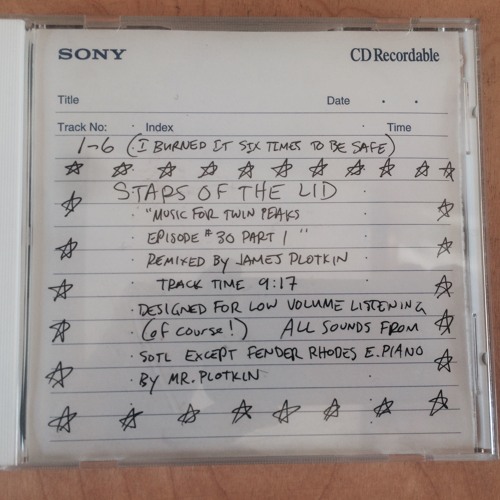 SONY CD Recordable
Title Date
Track No: Index Time
1-6 (I BURNED IT SIX TIMES TO BE SAFE)
STARS OF THE LID
"MUSIC FOR TWIN PEAKS
EPISODE #30 PART 1"
REMIXED BY JAMES PLOTKIN
TRACK TIME 9:17
DESIGNED FOR LOW VOLUME LISTENING
(OF COURSE!) ALL SOUNDS FROM
SOTL EXCEPT FENDER RHODES E. PIANO
BY MR. PLOTKIN